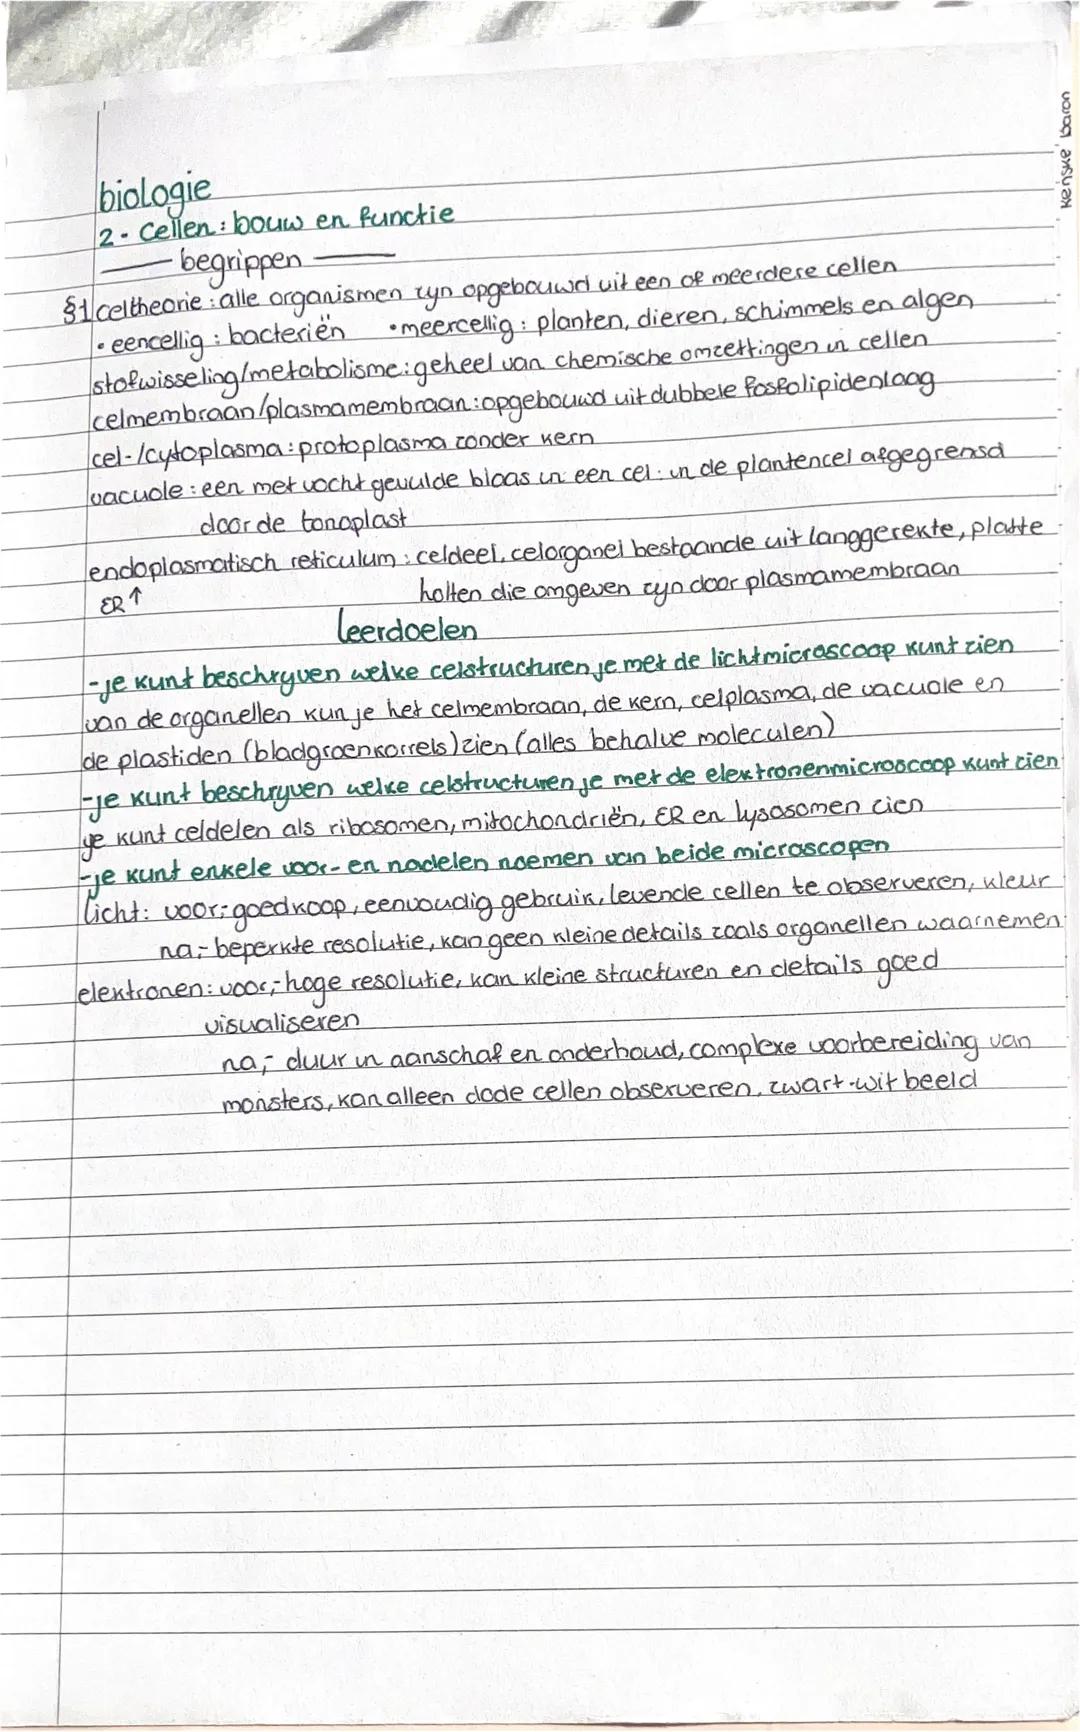 Kenske baron
biologie
2. Cellen: bouw en functie
begrippen
§1 celtheorie: alle organismen zyn opgebouwd uit een of meerdere cellen
• eencellig: bacteriën • meercellig: planten, dieren, schimmels en algen
stofwisseling/metabolisme: geheel van chemische omzettingen in cellen
celmembraan/plasmamembraan: opgebouwd uit dubbele fosfolipidenlaag
cel-/cytoplasma: protoplasma zonder kern
vacuole: een met vocht gevulde blaas in een cel: in de plantencel afgegrensd
door de tonoplast
endoplasmatisch reticulum: celdeel, celorganel bestaande uit langgerekte, platte
ER ↑ holten die omgeven zyn door plasmamembraan
leerdoelen
-je kunt beschryven welke celstructuren je met de lichtmicroscoop kunt zien
van de organellen kun je het celmembraan, de kern, celplasma, de vacuole en
de plastiden (bladgroenkorrels) zien (alles behalve moleculen)
-je kunt beschryven welke celstructuren je met de elektronenmicroscoop kunt zien
je kunt celdelen als ribosomen, mitochondriën, ER en lysosomen zien
-je kunt enkele voor- en nadelen noemen van beide microscopen
licht: voor;- goedkoop, eenvoudig gebruik, levende cellen te observeren, kleur
na;- beperkte resolutie, kan geen kleine details zoals organellen waarnemen
elektronen: voor;- hoge resolutie, kan kleine structuren en details goed
visualiseren
na;- duur in aanschaf en onderhoud, complexe voorbereiding van
monsters, kan alleen dode cellen observeren, zwart-wit beeld